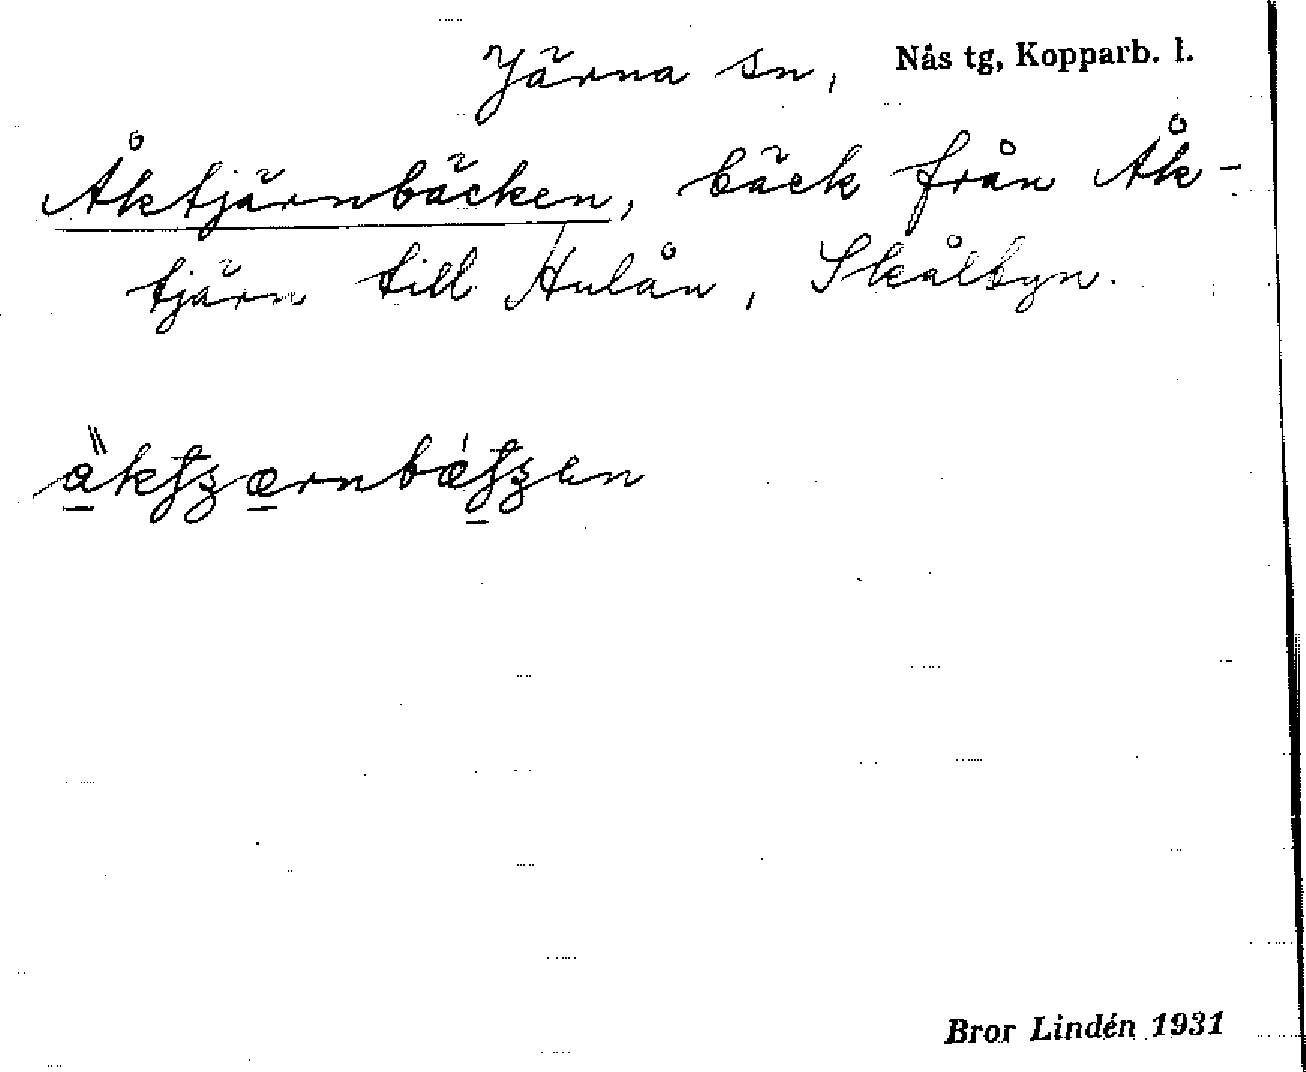 Järna sn, Nås tg, Kopparb. l.
Åktjärnbäcken, bäck från Åk-
tjärn till Hulån, Skålbyn.
Bror Lindén 1931